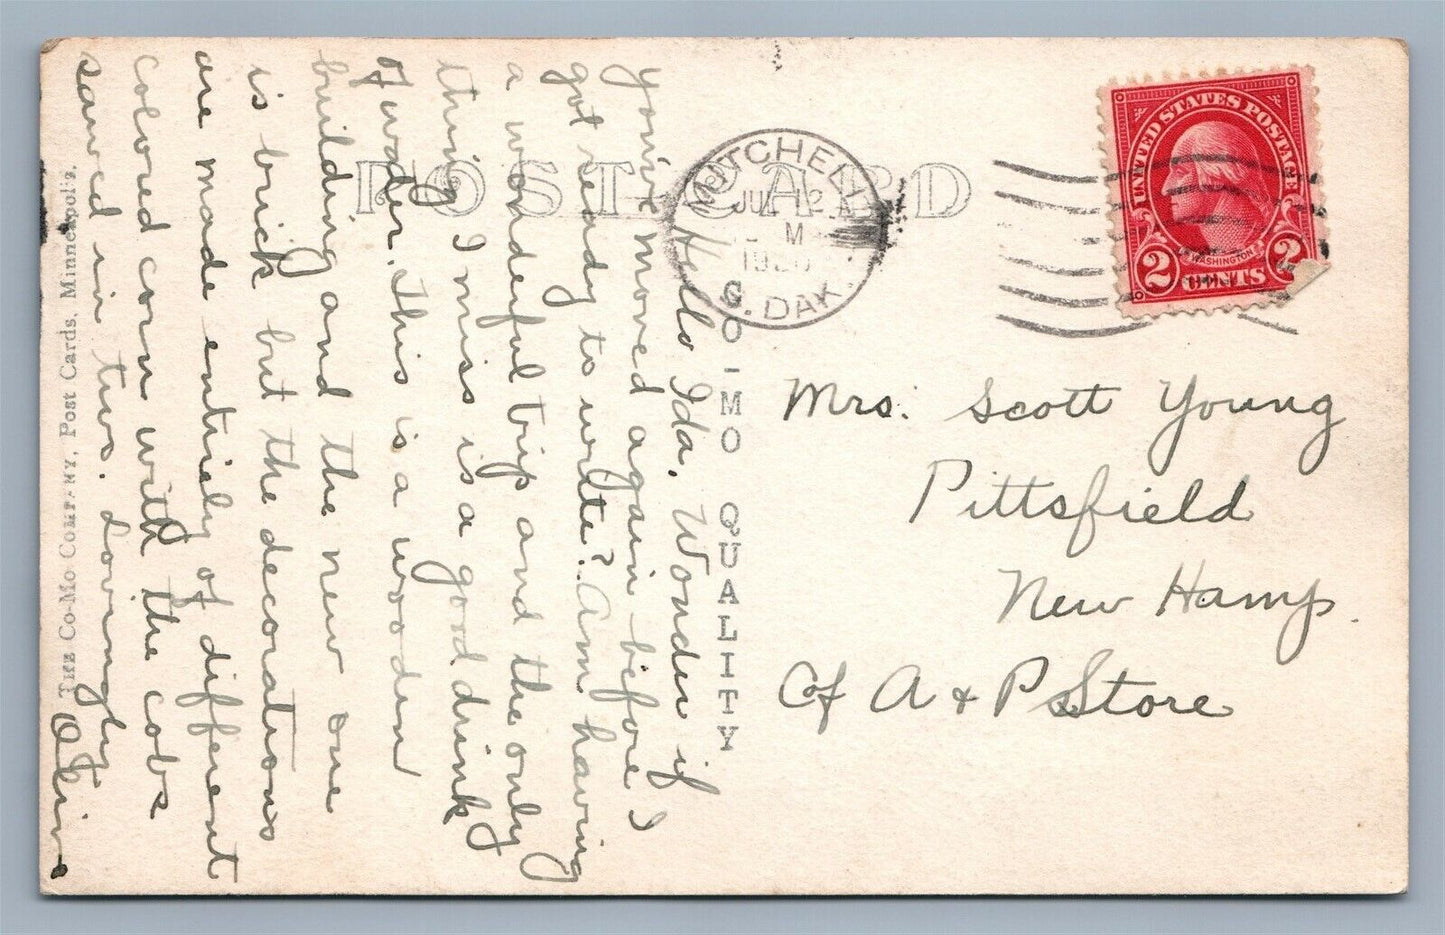 POST CARD
MITCHELL
JUL 2
M
1930
S. DAK.
UNITED STATES POSTAGE
WASHINGTON
2 CENTS 2
CO-MO QUALITY
THE CO-MO COMPANY, Post Cards, Minneapolis.
Hello Ida, Wonder if
you've moved again before I
got ready to write? Am having
a wonderful trip and the only
thing I miss is a good drink
of water. This is a wooden
building and the new one
is brick but the decorations
are made entirely of different
colored corn with the cobs
sawed in two. Lovingly
Mrs. Scott Young
Pittsfield
New Hamp.
C/o A & P Store